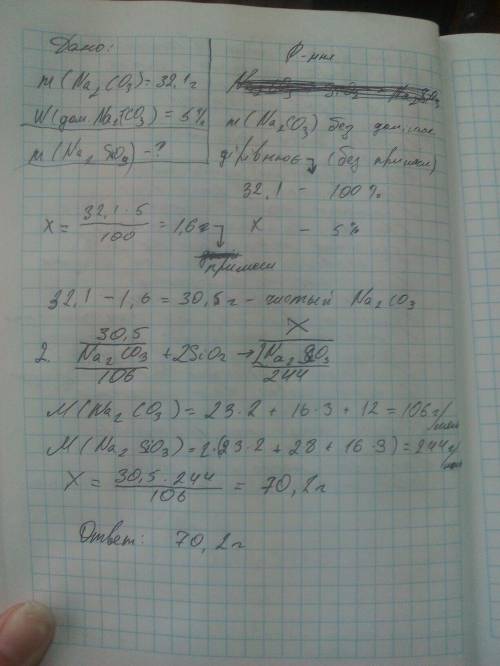 Дано:
m(Na₂CO₃)=32,1г
W(дом. Na₂CO₃) = 5%
m(Na₂SiO₃) - ?
Р-ння
m(Na₂CO₃) без дом.
дорівнює (без примеси)
32,1 - 100%
x - 5%
x = 32,1·5 / 100 = 1,6г
примеси
32,1 - 1,6 = 30,5г - чистый Na₂CO₃
30,5 X
2. Na₂CO₃ + 2SiO₂ → 2Na₂SiO₃
106 244
M(Na₂CO₃) = 23·2 + 16·3 + 12 = 106г/моль
M(Na₂SiO₃) = 2·(23·2 + 28 + 16·3) = 244г/моль
X = 30,5·244 / 106 = 70,2г
Ответ: 70,2г